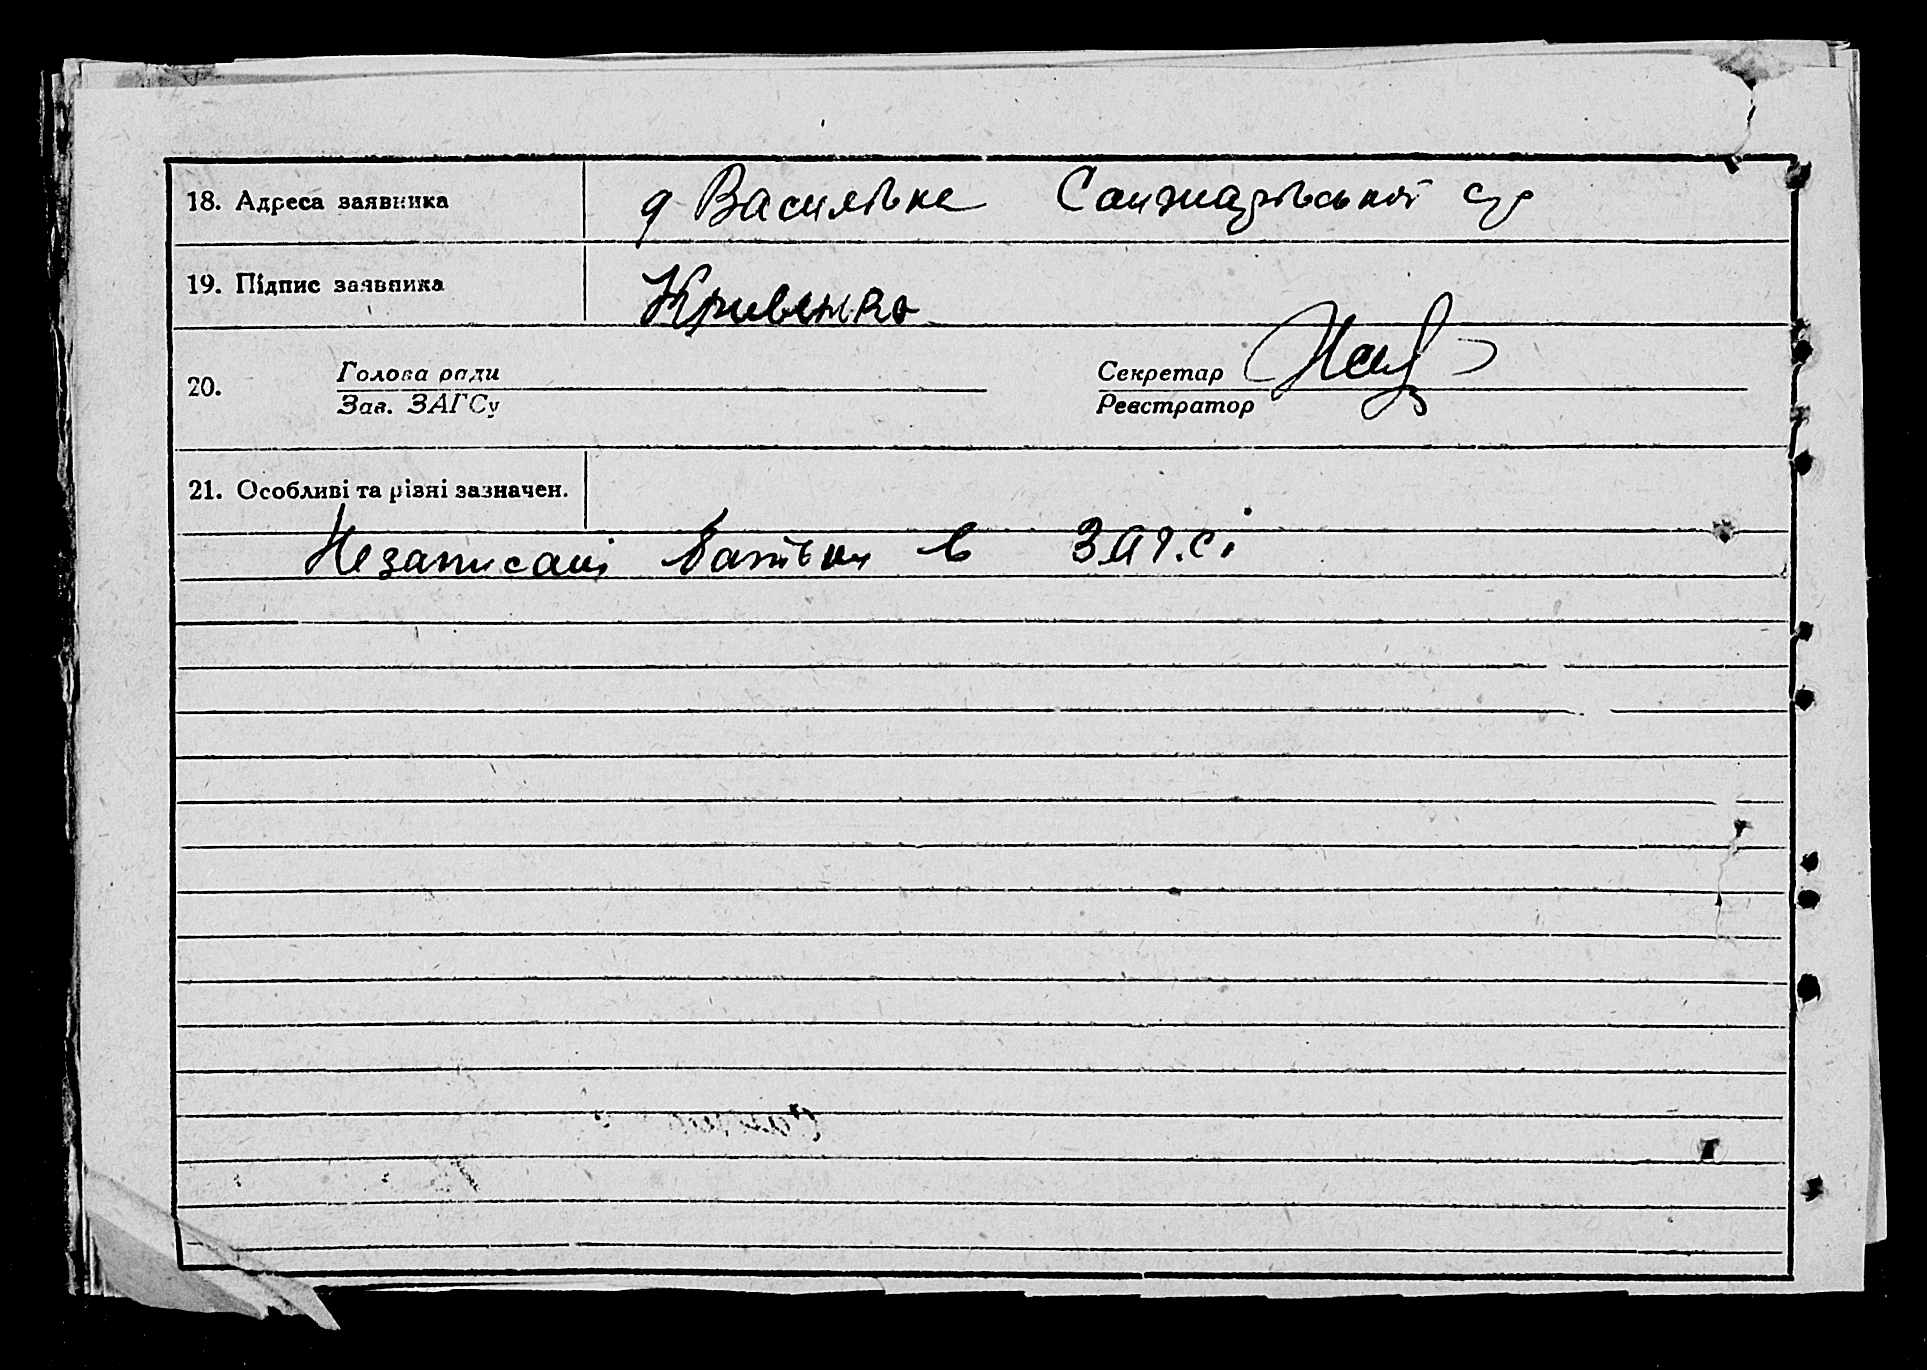 18. Адреса заявника д Василівка Санжарівської с/р
19. Підпис заявника Кривенко
20. Голова ради Секретар
Зав. ЗАГСу Реєстратор
21. Особливі та різні зазначен.
Незаписані батьки в ЗАГ.Сі